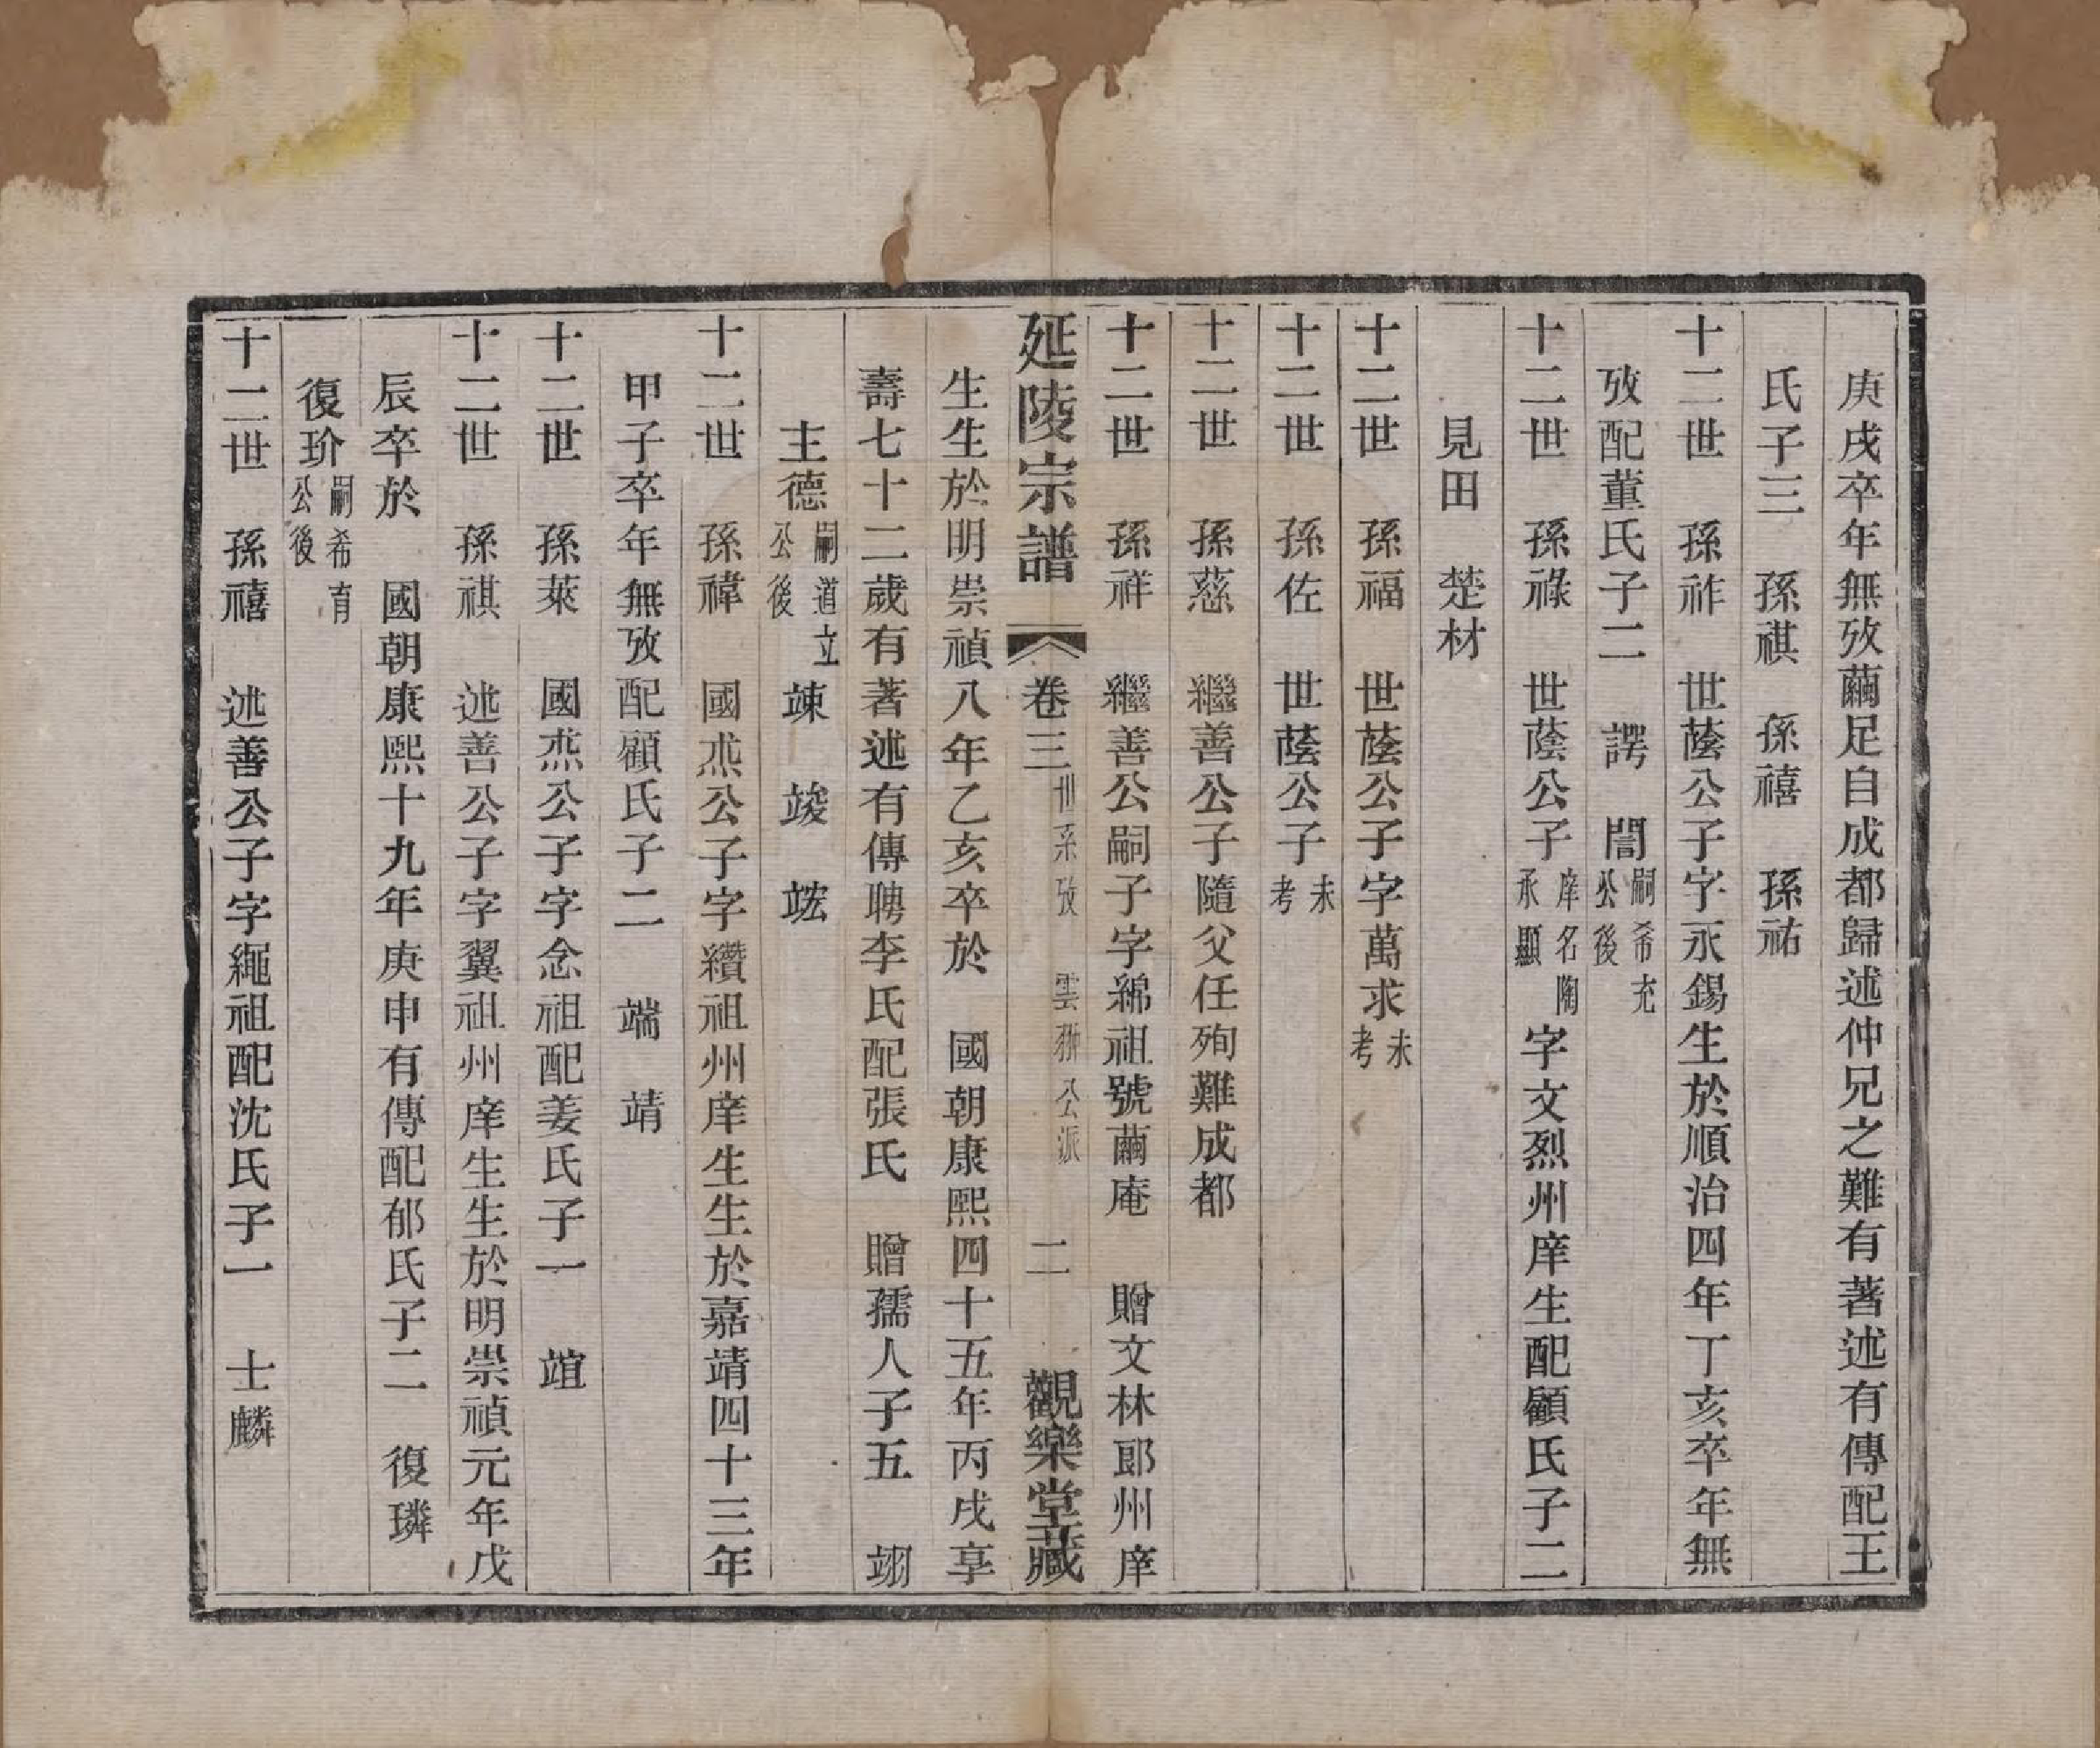 庚戌卒年無攷繭足自成都歸述仲兄之難有著述有傳配王
氏子三　孫祺　孫禧　孫祐
十二世　孫祚　世蔭公子字永錫生於順治四年丁亥卒年無
攷配董氏子二　諤　誾嗣希充公後
十二世　孫祿　世蔭公子庠名陶承顯字文烈州庠生配顧氏子二
見田　楚材
十二世　孫福　世蔭公子字萬求未考
十二世　孫佐　世蔭公子未考
十二世　孫慈　繼善公子隨父任殉難成都
十二世　孫祥　繼善公嗣子字綿祖號繭庵　贈文林郎州庠
延陵宗譜　卷三　世系攷　雲翀公派　二　觀樂堂藏
生生於明崇禎八年乙亥卒於　國朝康熙四十五年丙戌享
壽七十二歲有著述有傳聘李氏配張氏　贈孺人子五　翊
主德嗣道立公後　竦　竣　竑
十二世　孫禕　國烝公子字纘祖州庠生生於嘉靖四十三年
甲子卒年無攷配顧氏子二　端　靖
十二世　孫萊　國烝公子字念祖配姜氏子一　竩
十二世　孫祺　述善公子字翼祖州庠生生於明崇禎元年戊
辰卒於　國朝康熙十九年庚申有傳配郁氏子二　復璘
復玠嗣希育公後
十二世　孫禧　述善公子字繩祖配沈氏子一　士麟